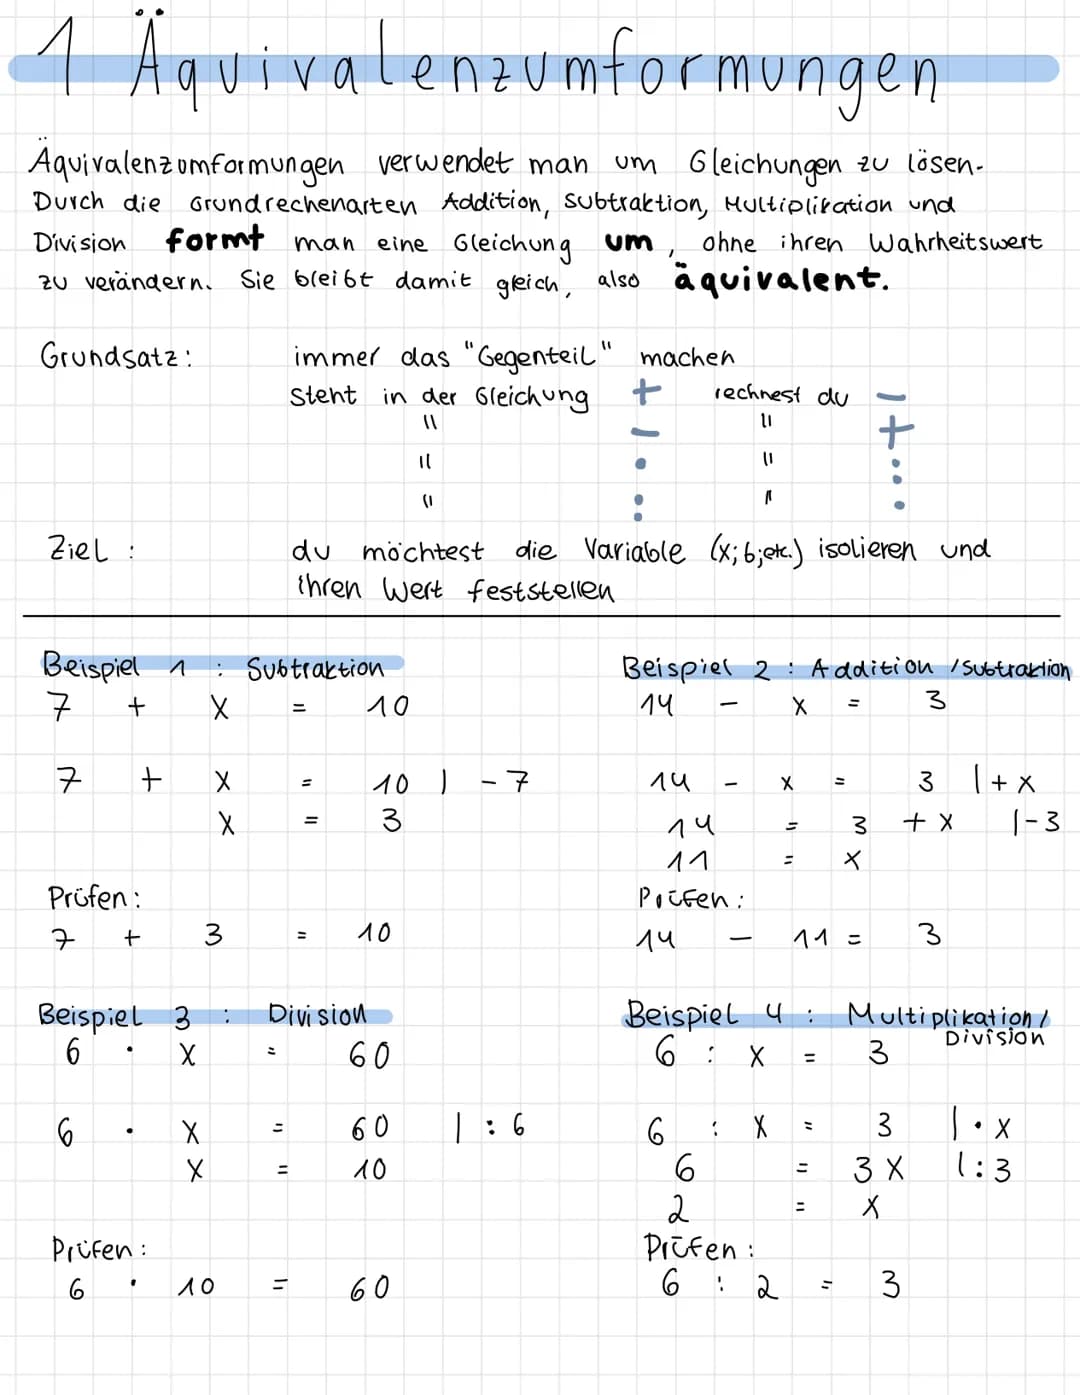 1 Äquivalenzumformungen
Äquivalenzumformungen verwendet man um Gleichungen zu lösen.
Durch die Grundrechenarten Addition, Subtraktion, Multiplikation und
Division formt man eine Gleichung um, ohne ihren Wahrheitswert
zu verändern. Sie bleibt damit gleich, also äquivalent.
Grundsatz: immer das "Gegenteil" machen
steht in der Gleichung + rechnest du -
" - " +
" · " :
" : " ·
Ziel: du möchtest die Variable (x; b; etc.) isolieren und
ihren Wert feststellen
Beispiel 1 : Subtraktion
7 + x = 10
7 + x = 10 | - 7
x = 3
Prüfen:
7 + 3 = 10
Beispiel 2 : Addition / Subtraktion
14 - x = 3
14 - x = 3 | + x
14 = 3 + x | - 3
11 = x
Prüfen:
14 - 11 = 3
Beispiel 3 : Division
6 · x = 60
6 · x = 60 | : 6
x = 10
Prüfen:
6 · 10 = 60
Beispiel 4 : Multiplikation /
Division
6 : x = 3
6 : x = 3 | · x
6 = 3x | : 3
2 = x
Prüfen:
6 : 2 = 3